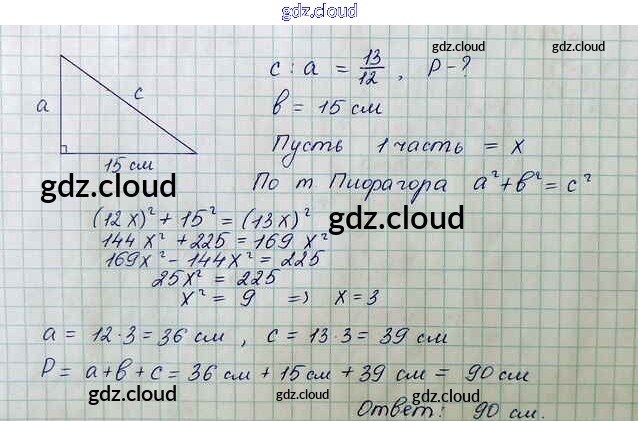 gdz.cloud
c : a = 13/12 , P - ?
gdz.cloud
gdz.cloud
a
c
в = 15 см
15 см
Пусть 1 часть = x
gdz.cloud
По т Пифагора a² + в² = c²
(12x)² + 15² = (13x)²
gdz.cloud
144x² + 225 = 169x²
169x² - 144x² = 225
25x² = 225
x² = 9 => x = 3
a = 12·3 = 36 см , c = 13·3 = 39 см
P = a+в+c = 36 см + 15 см + 39 см = 90 см
gdz.cloud
gdz.cloud
Ответ: 90 см.